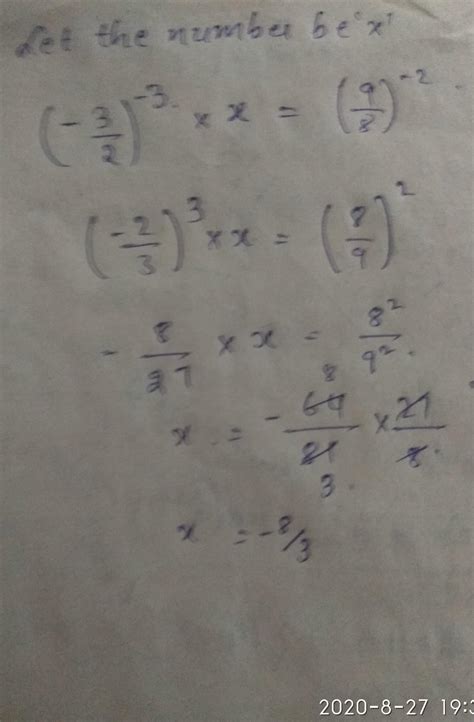 Let the number be 'x'
(-3/2)^-3 × x = (9/8)^-2
(-2/3)^3 × x = (8/9)^2
-8/27 × x = 8^2/9^2.
x = -64/81 × 27/8.
8
3.
x = -8/3
2020-8-27 19:3